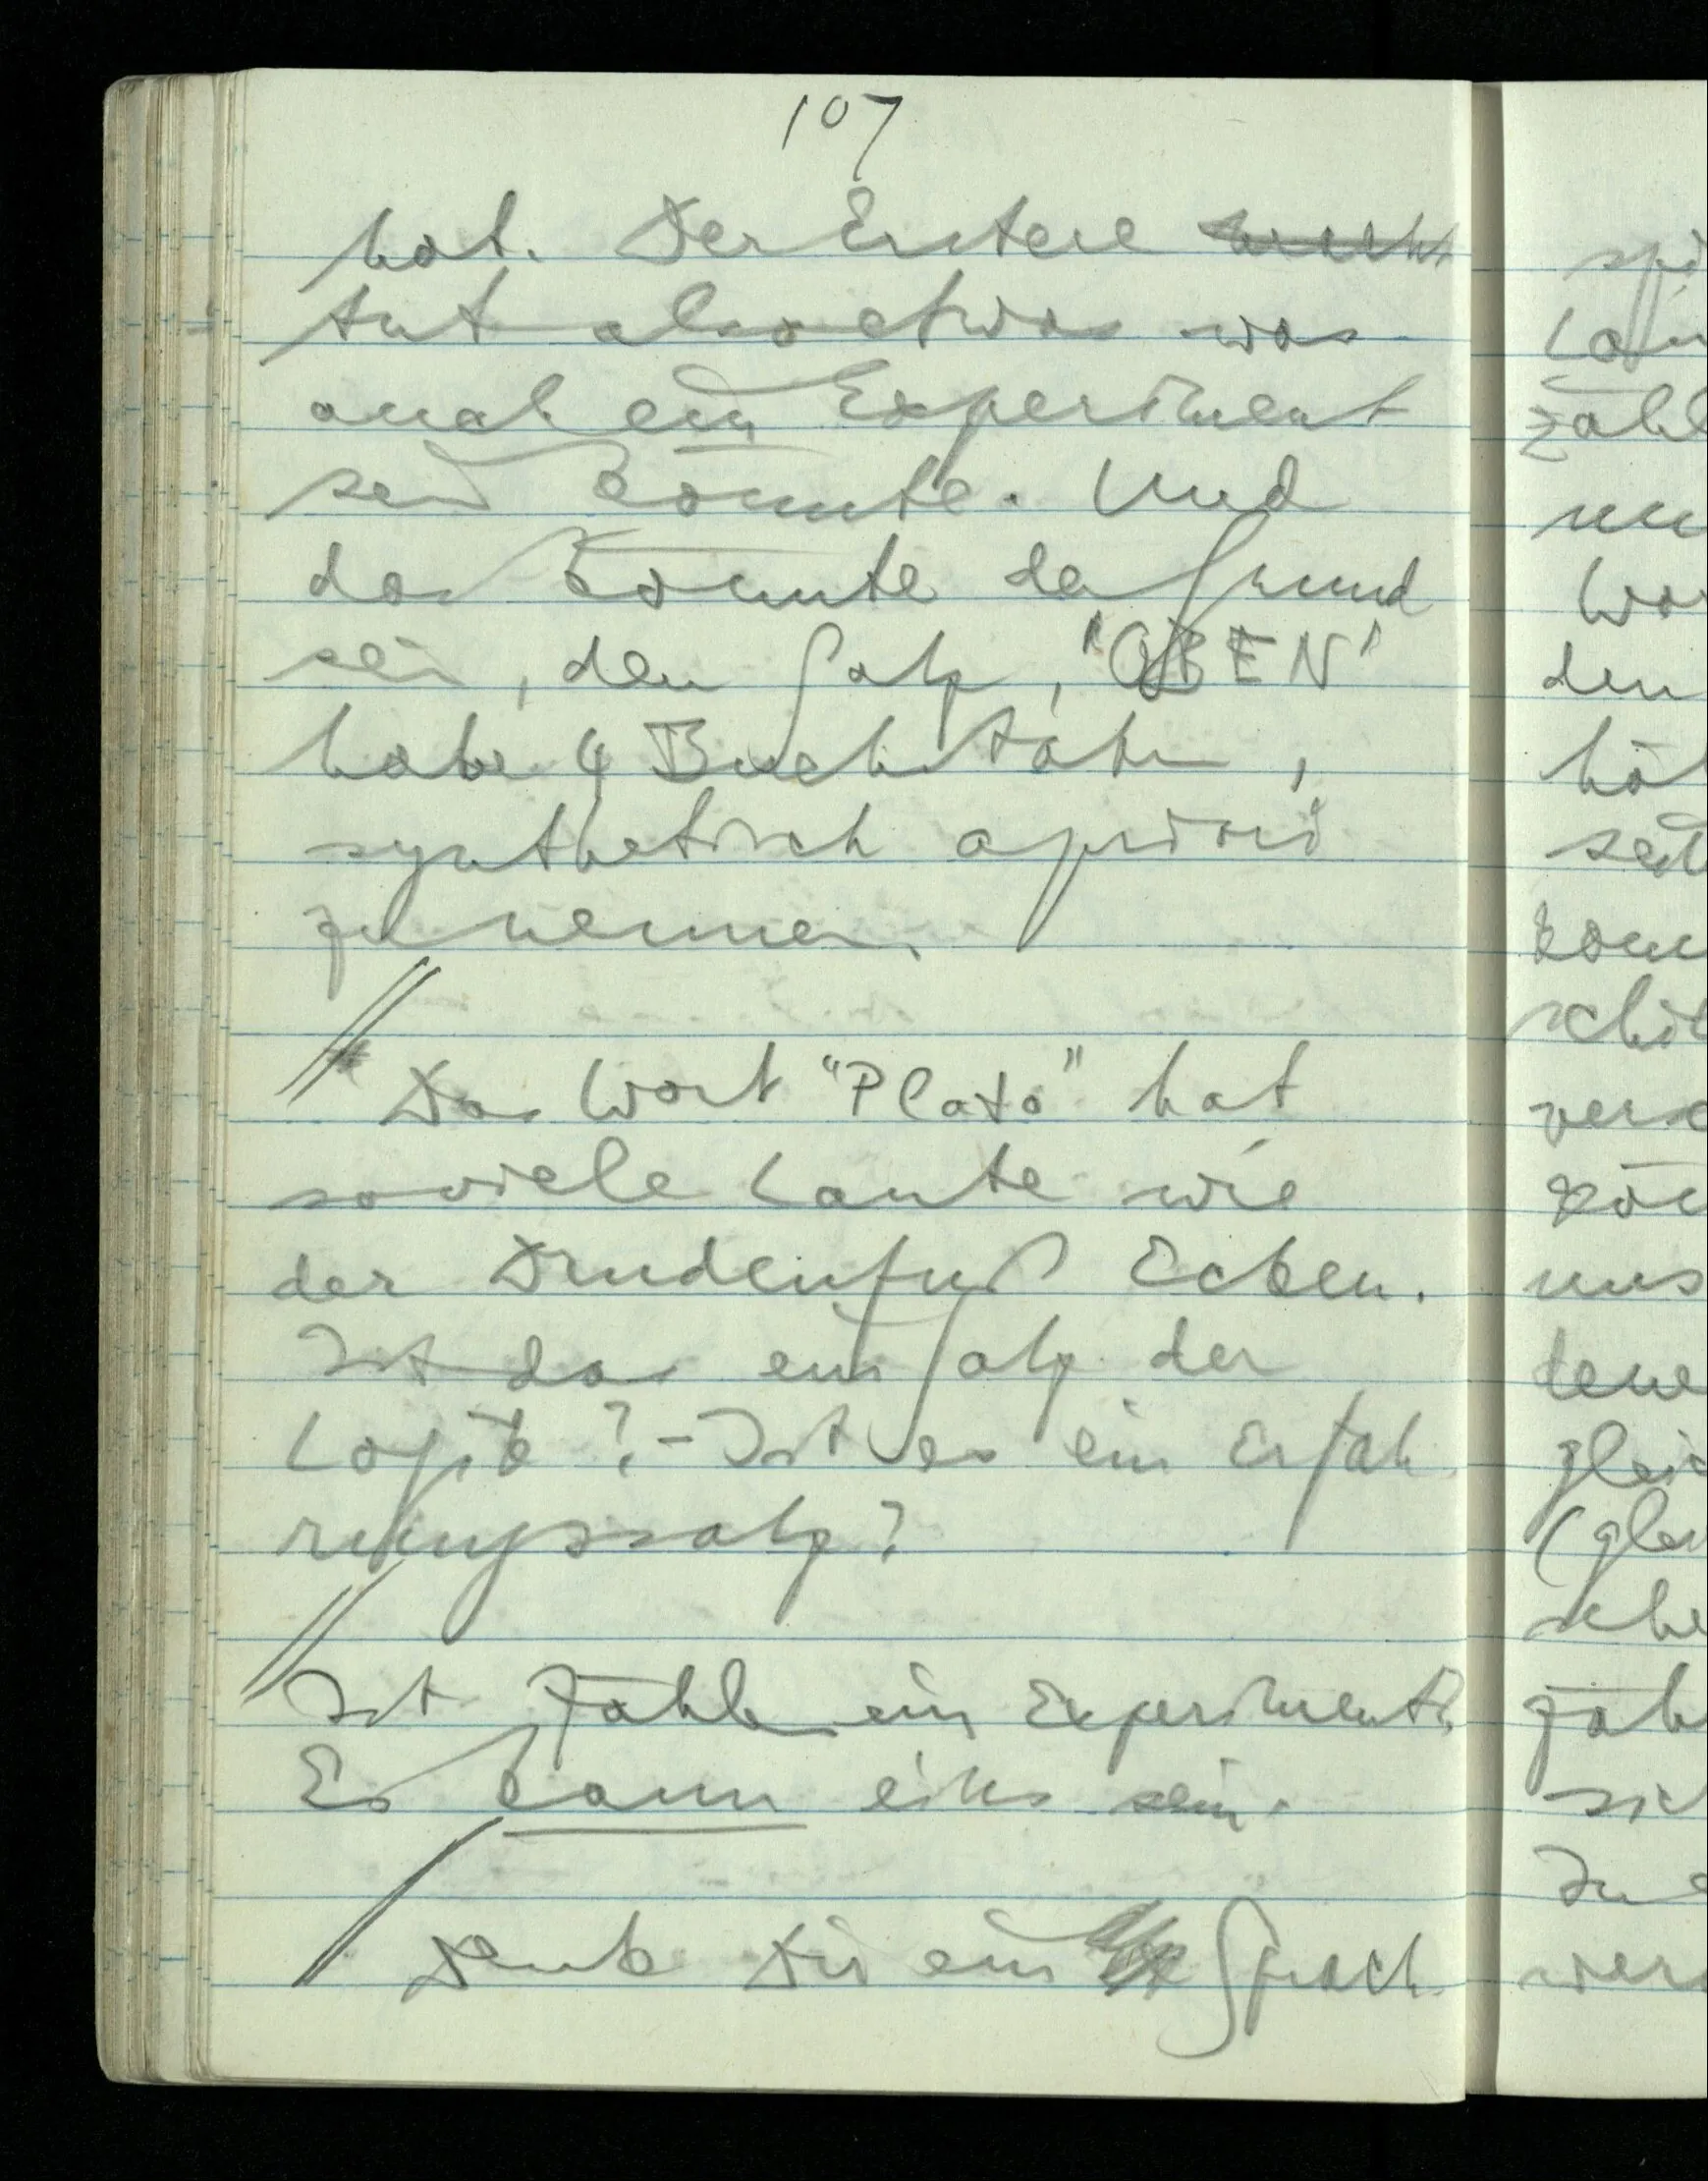 107
hat. Der Erstere
tut also etwas was
auch ein Experiment
sein könnte. Und
das könnte der Grund
sein, den Satz, 'OBEN'
habe 4 Buchstaben,
synthetisch a priori
zu nennen.
Das Wort "Plato" hat
soviele Laute wie
der Drudenfuß Ecken.
Ist das ein Satz der
Logik? – Ist es ein Erfah
rungssatz?
Ist Zählen ein Experiment?
Es kann eins sein.
Denk Dir ein Sprach